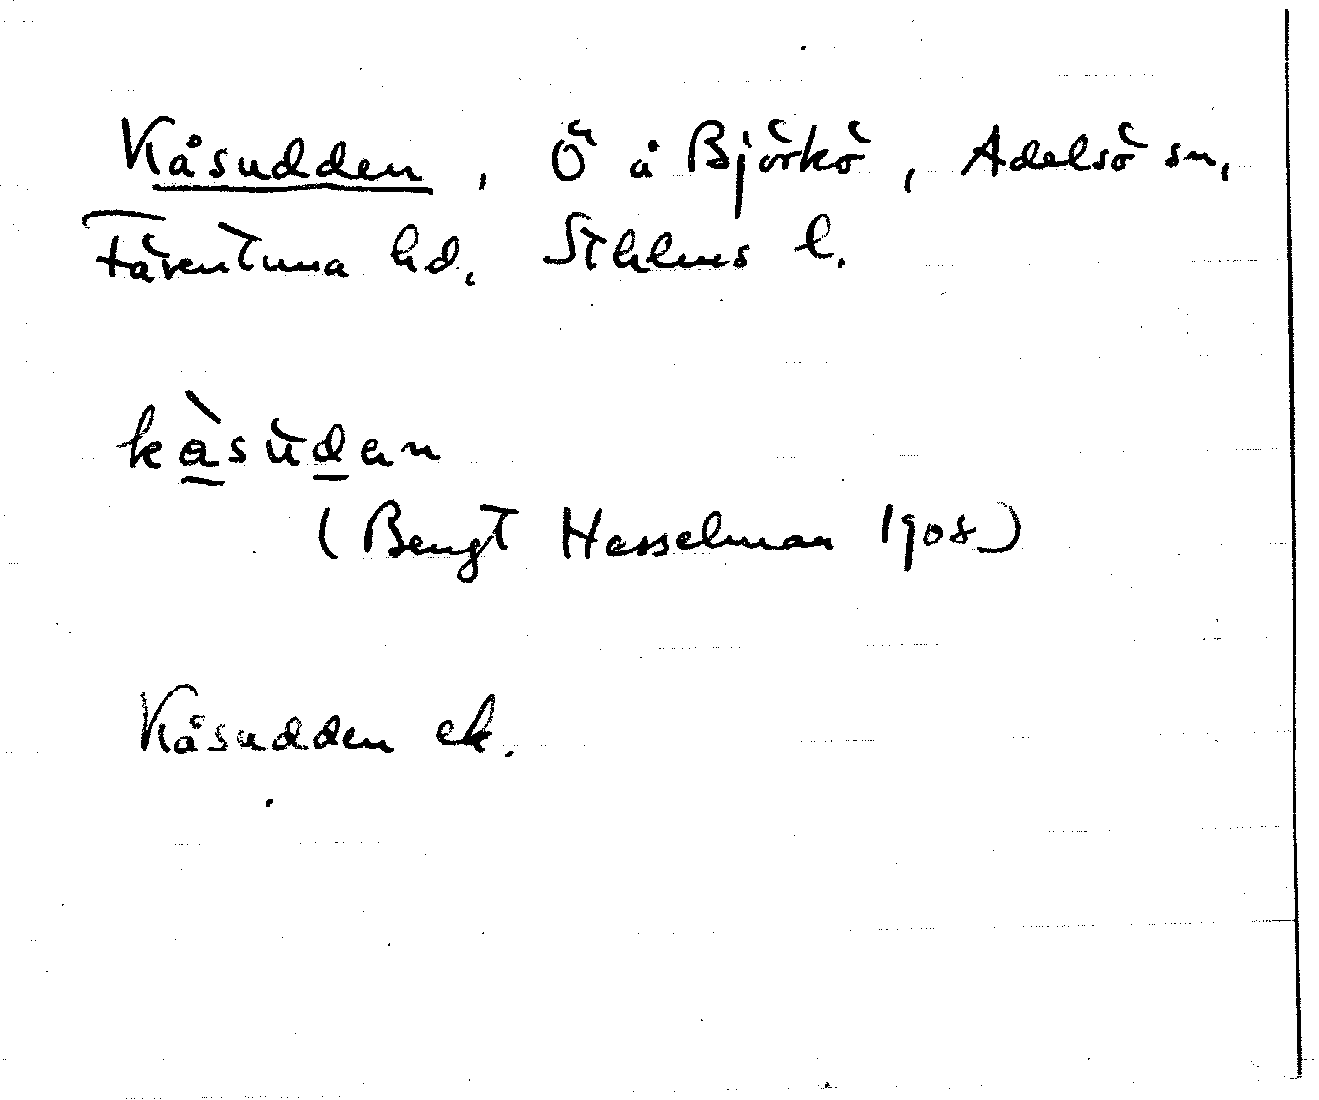 Kåsudden, Ö å Björkö, Adelsö sn,
Färentuna hd. Sthlms l.
kàsùdan
(Bengt Hesselman 1908)
Kåsudden ek.